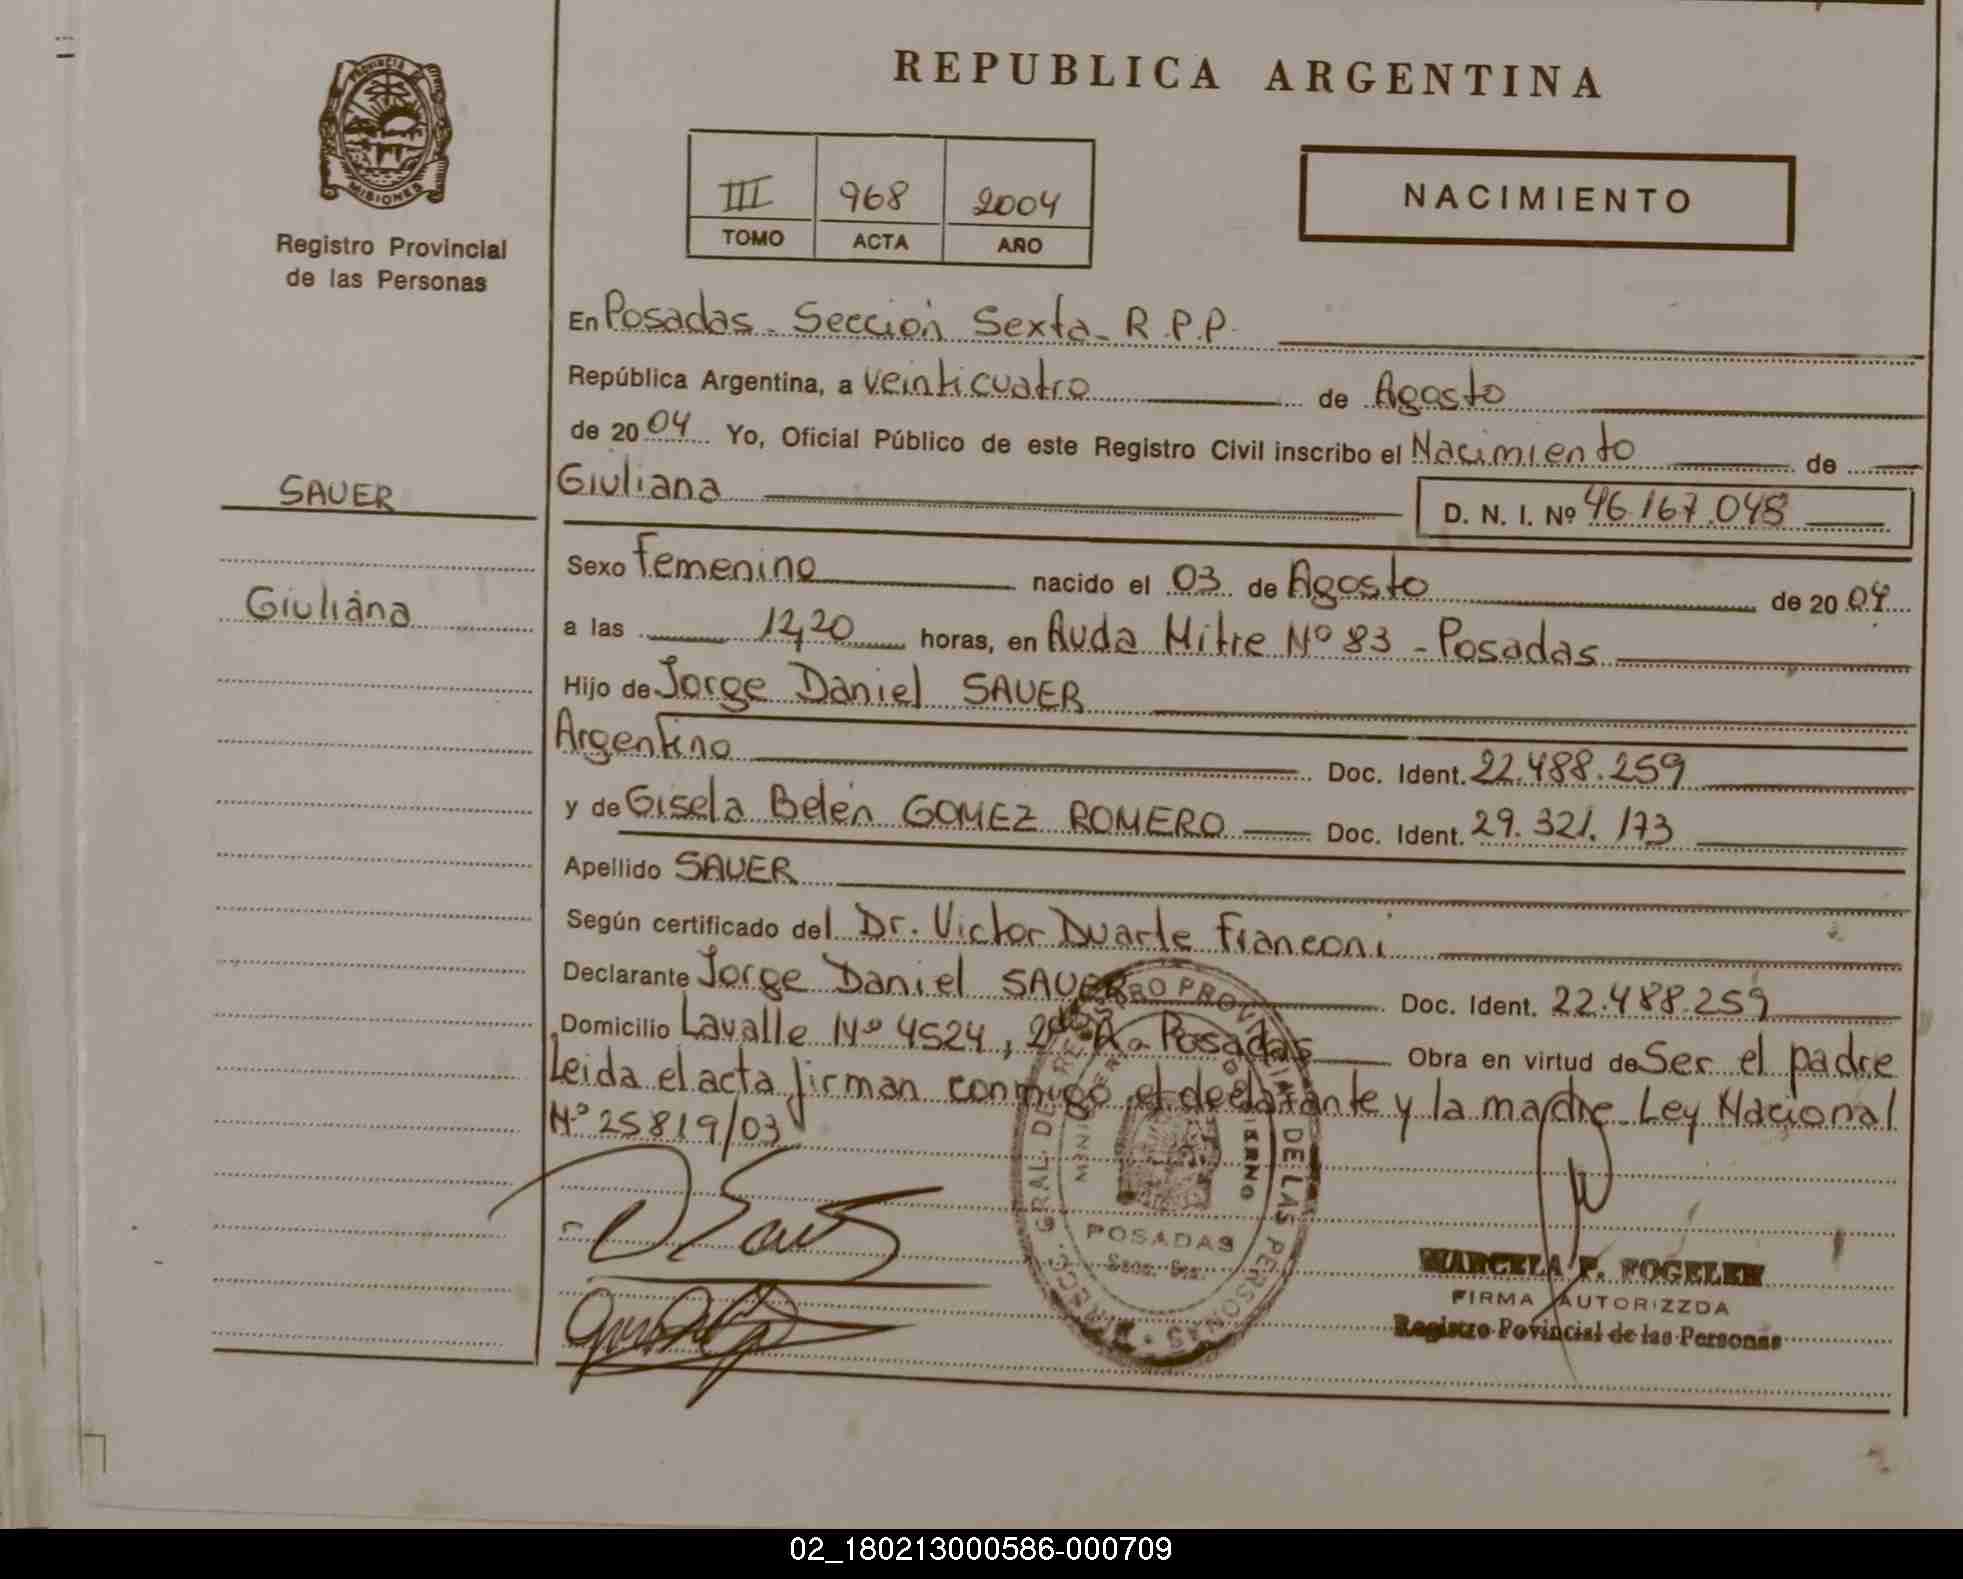 REPUBLICA ARGENTINA
PROVINCIA DE
MISIONES
Registro Provincial
de las Personas
III 968 2004
TOMO ACTA AÑO
NACIMIENTO
En Posadas - Sección Sexta - R.P.P.
República Argentina, a veinticuatro de Agosto
de 2004 Yo, Oficial Público de este Registro Civil inscribo el Nacimiento de
SAUER
Giuliana D. N. I. Nº 46.167.048
Sexo Femenino nacido el 03 de Agosto de 2004
Giuliana
a las 12,20 horas, en Avda Mitre Nº 83 - Posadas
Hijo de Jorge Daniel SAUER
Argentino Doc. Ident. 22.488.259
y de Gisela Belén GOMEZ ROMERO Doc. Ident. 29.321.173
Apellido SAUER
Según certificado del Dr. Victor Duarte Franconi
Declarante Jorge Daniel SAUER Doc. Ident. 22.488.259
Domicilio Lavalle Nº 4524, 2º A - Posadas Obra en virtud de Ser el padre
Leida el acta firman conmigo, el declarante y la madre. Ley Nacional
Nº 25819/03
DIRECC. GRAL. DE REGISTRO PROVINCIAL DE LAS PERSONAS
POSADAS
MARCELA F. FOGELER
FIRMA AUTORIZZDA
Registro Povincial de las Personas
02_180213000586-000709